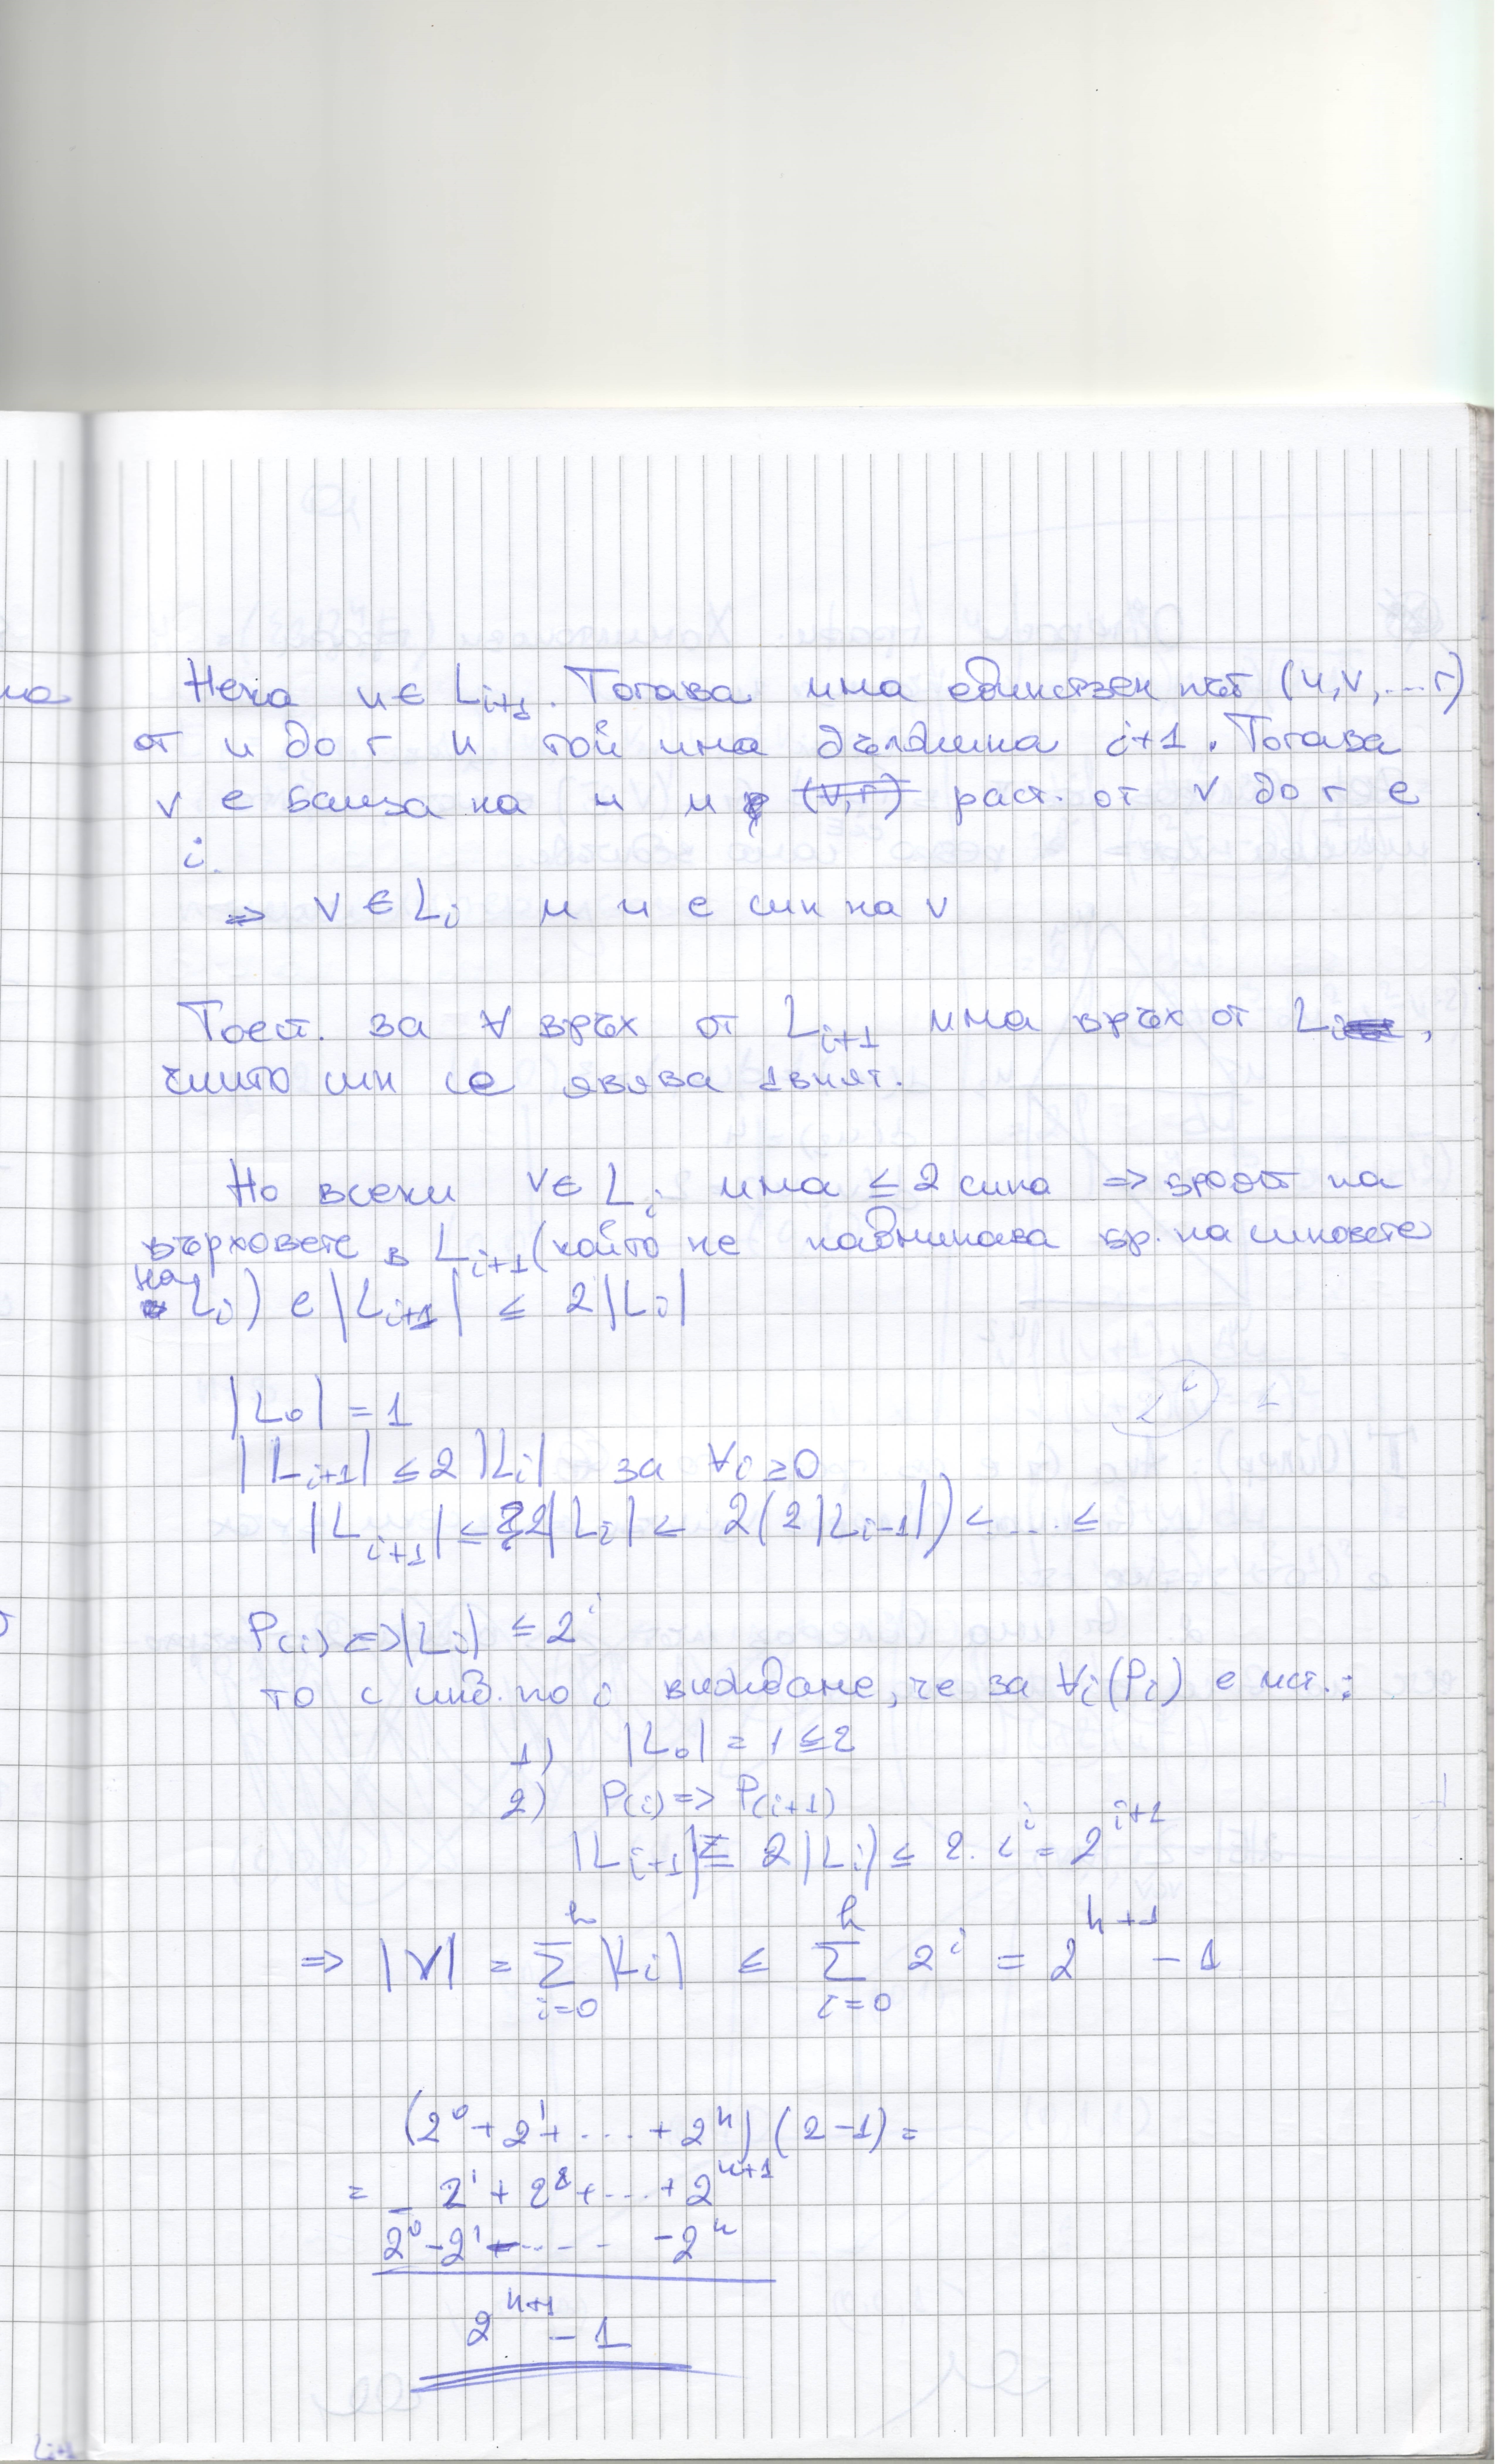 на
Нека u ∈ L_{i+1}. Тогава има единствен път (u,v,...r)
от u до r и той има дължина i+1. Тогава
v е баща на u и (v,r) раст. от v до r е
i.
⇒ v ∈ L_i и u е син на v
Тоест. за ∀ връх от L_{i+1} има връх от L_i,
чиито син се явява
Но всеки v ∈ L_i има ≤ 2 сина ⇒ броят на
върховете в L_{i+1} (който не надминава бр. на синовете
на L_i) е |L_{i+1}| ≤ 2|L_i|
|L_0| = 1
|L_{i+1}| ≤ 2|L_i| за ∀i ≥ 0
|L_{i+1}| ≤ 2|L_i| ≤ 2(2|L_{i-1}|) < ... ≤
P(i) ⇔ |L_i| ≤ 2^i
то с инд. по i виждаме, че за ∀i(P_i) е ист.:
1) |L_0| = 1 ≤ 2
2) P(i) ⇒ P(i+1)
|L_{i+1}| ≤ 2|L_i| ≤ 2.2^i = 2^{i+1}
⇒ |V| = \sum_{i=0}^{h} |L_i| ≤ \sum_{i=0}^{h} 2^i = 2^{h+1} - 1
(2^0 + 2^1 + ... + 2^h)(2-1) =
= _ 2^1 + 2^2 + ... + 2^{h+1}
2^0 - 2^1 - ... - 2^h
2^{h+1} - 1
L_{i+1}